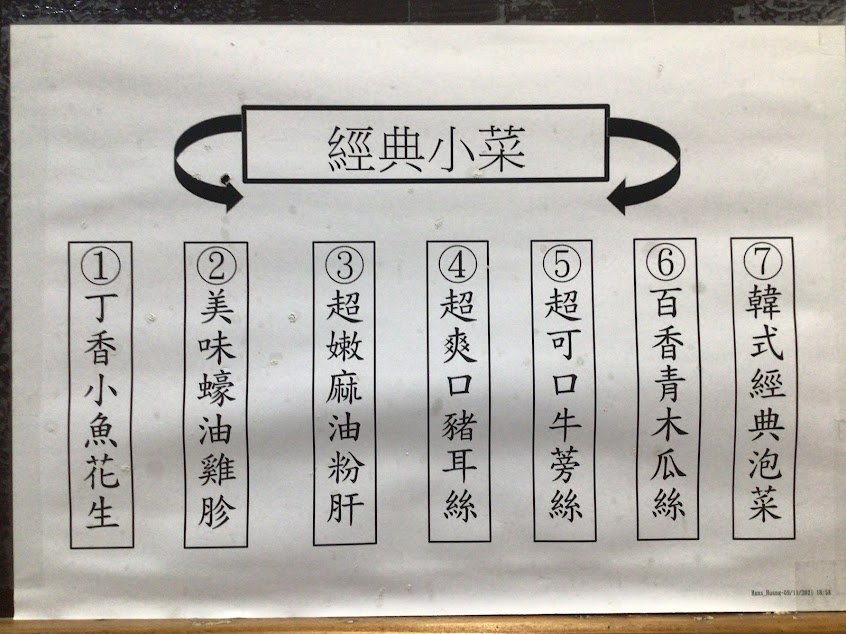 經典小菜
①丁香小魚花生
②美味蠔油雞胗
③超嫩麻油粉肝
④超爽口豬耳絲
⑤超可口牛蒡絲
⑥百香青木瓜絲
⑦韓式經典泡菜